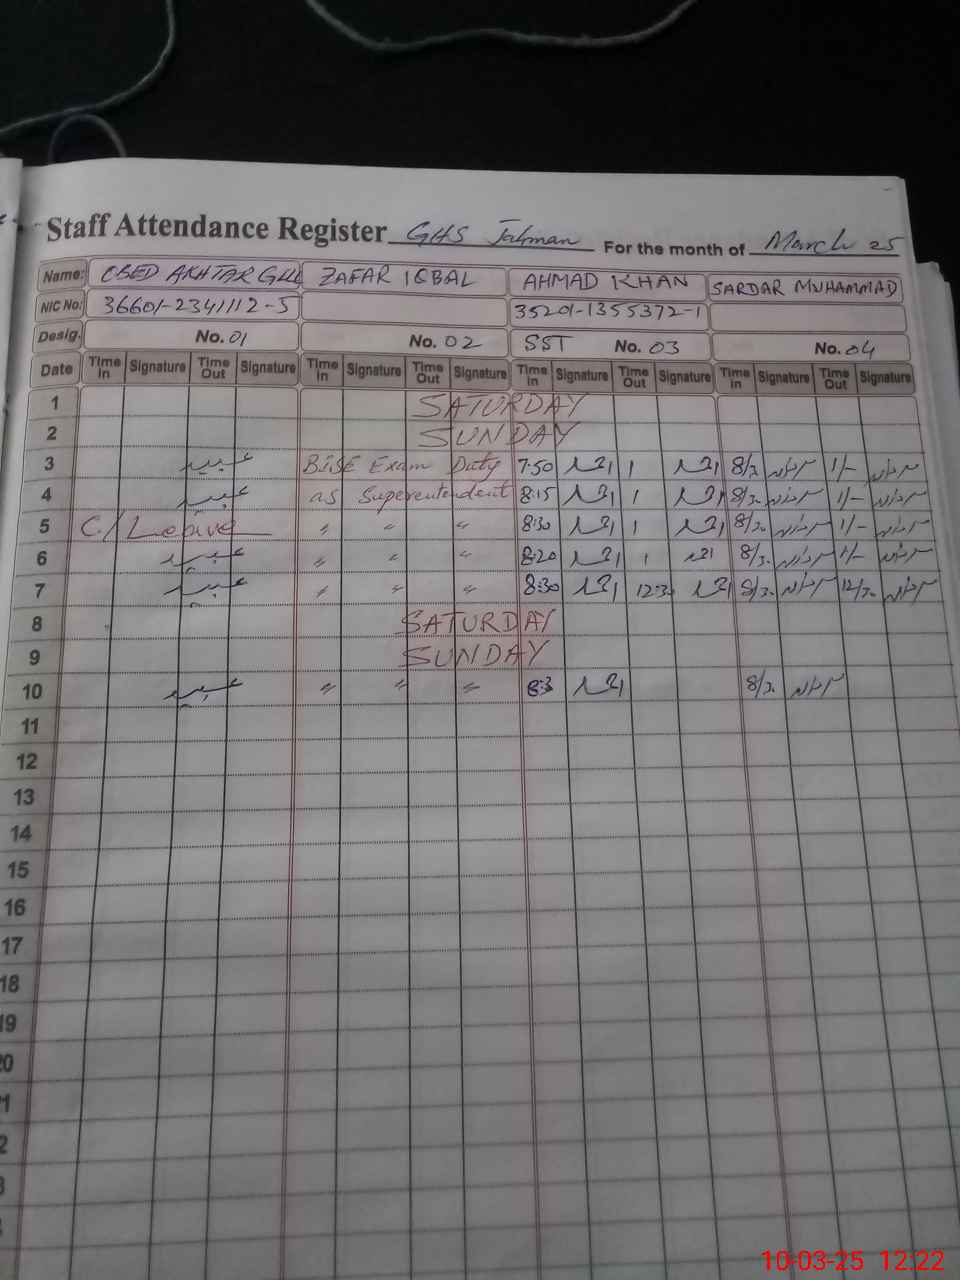 Staff Attendance Register GHS Jahman For the month of March 25
Name: OBED AKHTAR GILL ZAFAR IQBAL AHMAD KHAN SARDAR MUHAMMAD
NIC No: 36601-2341112-5 35201-1355372-1
Desig. No. 01 No. 02 SST No. 03 No. 04
Date Time In Signature Time Out Signature Time In Signature Time Out Signature Time In Signature Time Out Signature Time In Signature Time Out Signature
1 SATURDAY
2 SUNDAY
3 عبید BISE Exam Duty 7:50 احمد 1 احمد 8/30 1/-
4 عبید as Superentendent 8:15 احمد 1 احمد 8/30 1/-
5 C/Leave " " " 8:30 احمد 1 احمد 8/30 1/-
6 عبید " " " 8:20 احمد 1 احمد 8/30 1/-
7 عبید " " " 8:30 احمد 12:30 احمد 8/30 12/30
8 SATURDAY
9 SUNDAY
10 عبید " " " 8:3 احمد 8/30
11
12
13
14
15
16
17
18
19
20
10-03-25 12:22